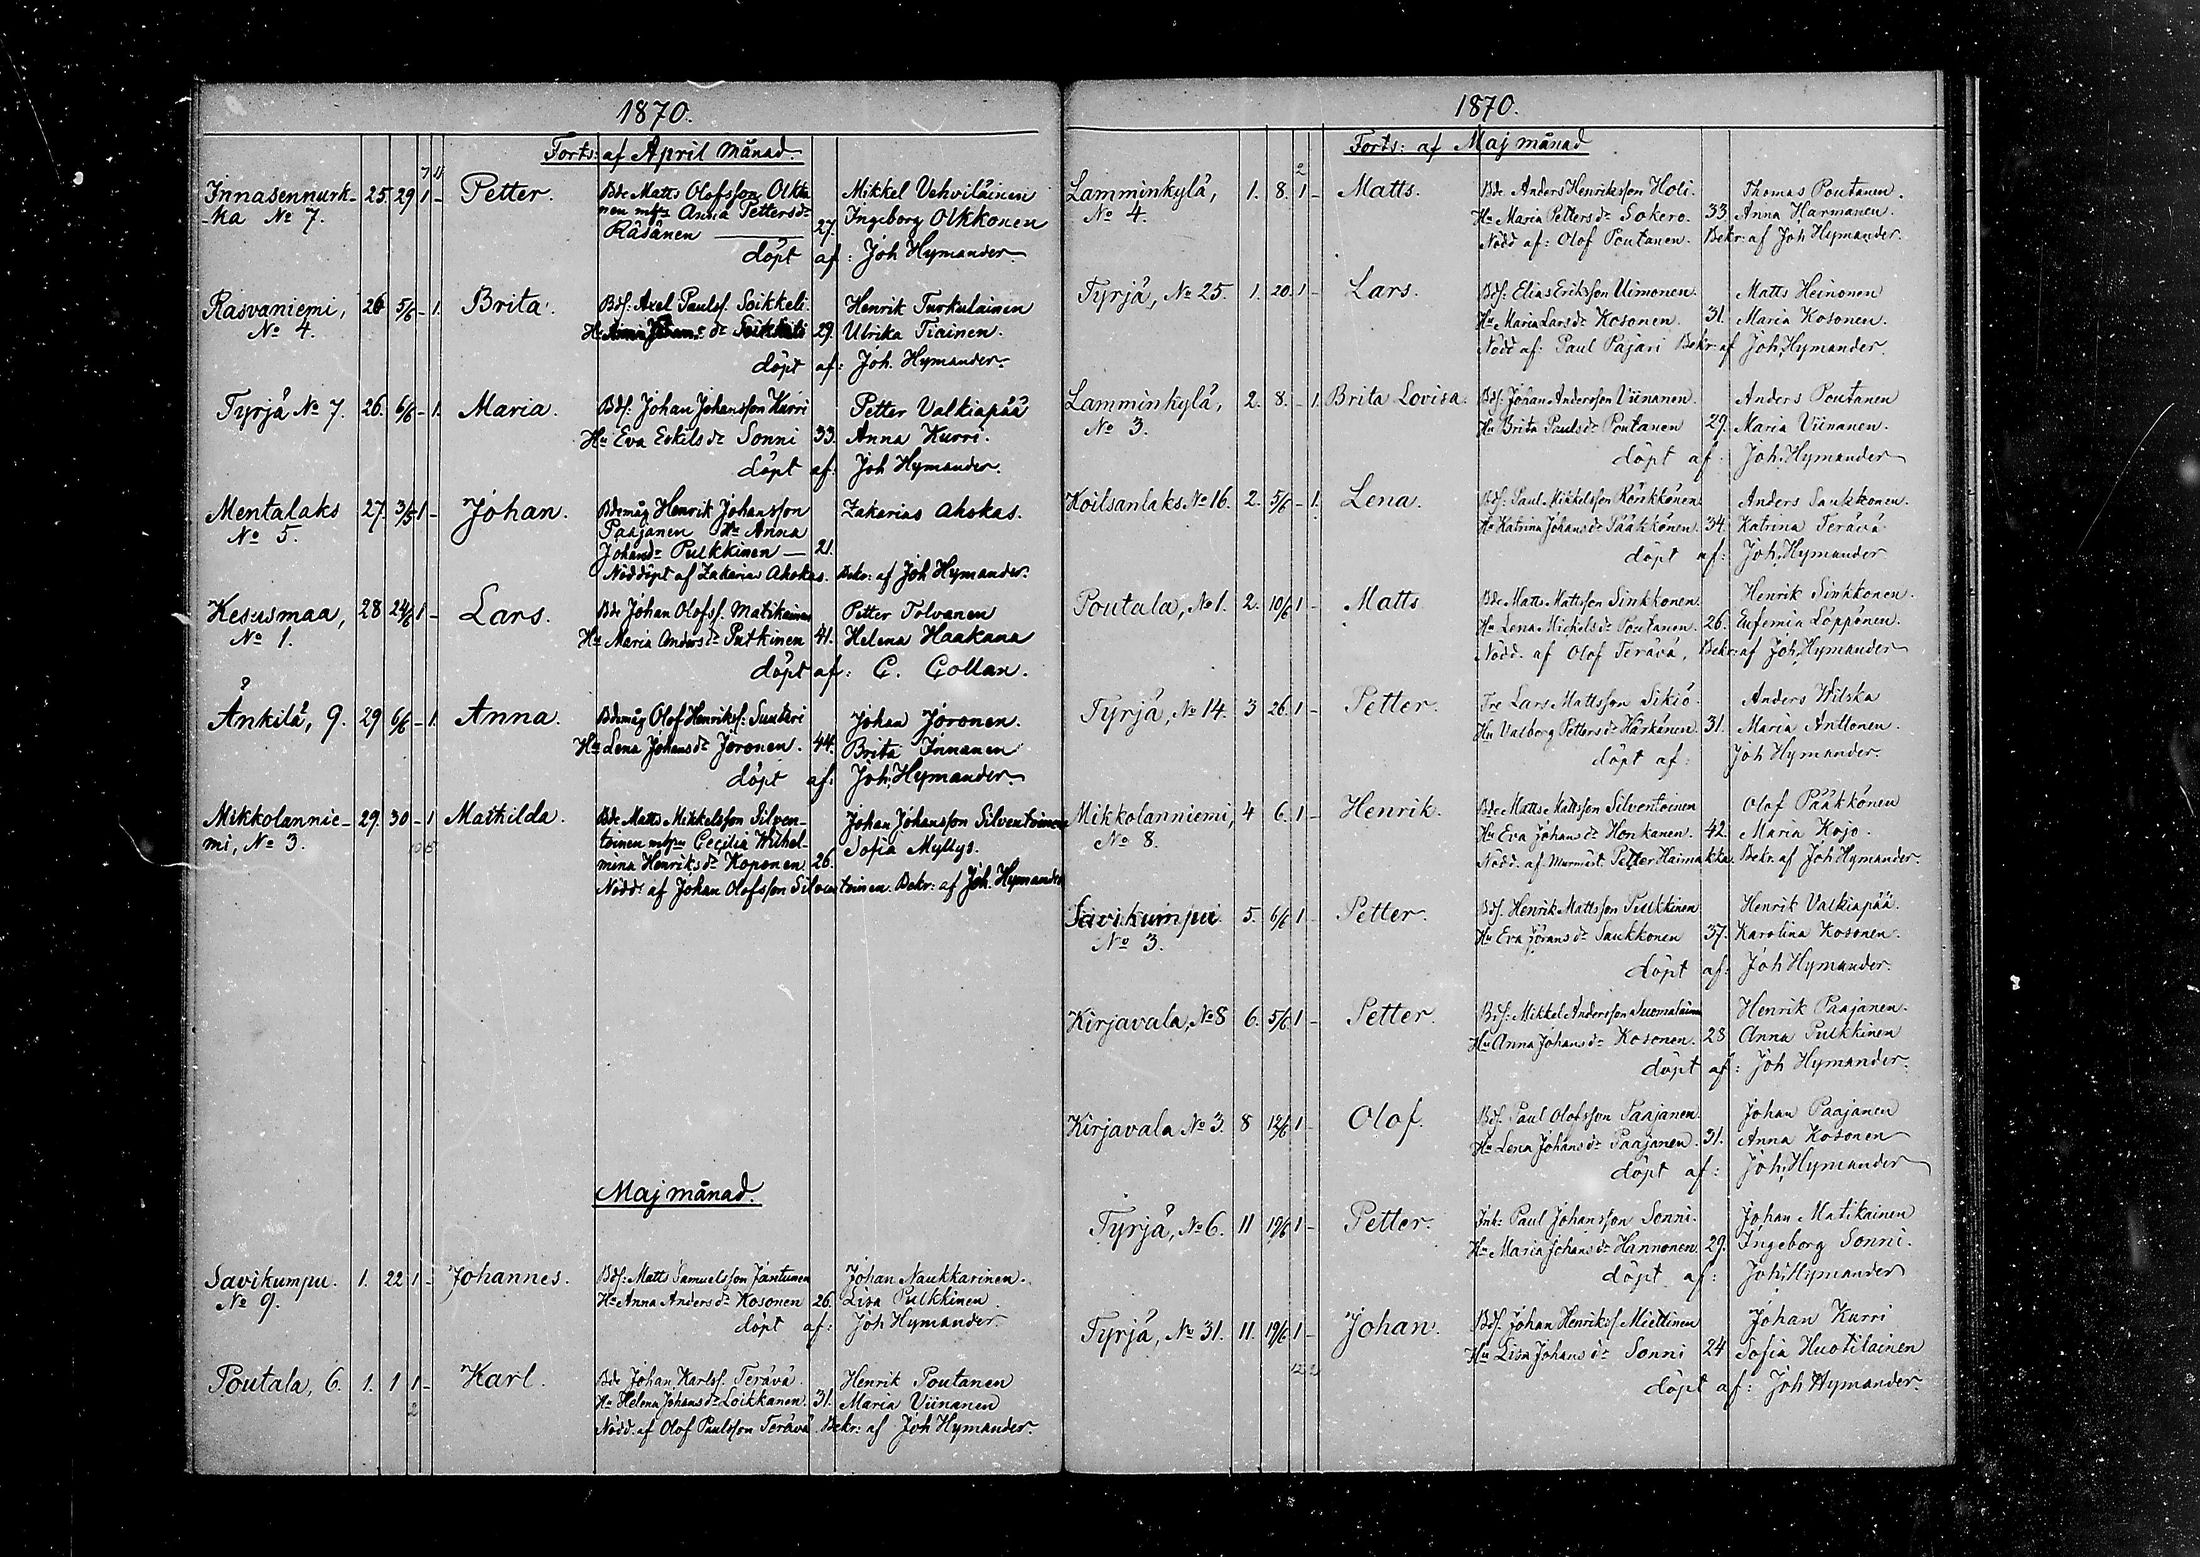 1870.
Forts: af April månad.
7 4
Innasennurk- 25. 29 1 - Petter. Bde Matts Olofsson Olkko Mikkel Vehviläinen
-ka No 7. nen mhu Anna Pettersdr Ingeborg Olkkonen
Räsänen 27.
döpt af: Joh Hymander
Rasvaniemi, 26 5/6 - 1. Brita. Bdf. Axel Paulsf. Soikkeli. Henrik Turkulainen
No 4. Hu Anna Johansdr Soikkeli 29. Ulrika Tiainen.
döpt af: Joh. Hymander.
Tyrjä No 7. 26. 6/6 - 1. Maria. Bdf. Johan Johansson Kurri Petter Valkiapää
Hu Eva Eskilsdr Sonni 33. Anna Kurri.
döpt af: Joh Hymander.
Mentalaks 27. 3/5 1 - Johan. Bdemåg Henrik Johansson Zakarias Ahokas.
No 5. Paajanen Hu Anna
Johansdr Pulkkinen 21.
Nöddöpt af Zakarias Ahokas. Bekr: af Joh Hymander.
Kesusmaa, 28 24/6 1 - Lars. Bde Johan Olofsf. Matikainen Petter Tolvanen
No 1. Hu Maria Andersdr Putkinen 41. Helena Haakana
döpt af: C. Collan.
Änkilä, 9. 29 6/6 - 1. Anna. Bdemåg Olof Henriksf: Suuteri Johan Joronen.
Hu Lena Johansdr Joronen. 44. Brita Innanen
döpt af: Joh. Hymander
Mikkolannie- 29. 30 - 1 Mathilda. Bde Matts Mikkelsson Silven- Johan Johansson Silventoinen
mi, No 3. toinen mhu Cecilia Wilhel- Sofia Myllys.
mina Henriksdr Koponen 26.
Nödd: af Johan Olofsson Silventoinen. Bekr: af Joh. Hymander
Maj månad.
Savikumpu. 1. 22 1 - Johannes. Bdf: Matts Samuelsson Jantunen Johan Naukkarinen.
No 9. Hu Anna Andersdr Kosonen 26. Lisa Pulkkinen
döpt af: Joh Hymander
Poutala, 6. 1. 1 1 - Karl. Bde Johan Karlsf. Terävä. Henrik Poutanen
2 Hu Helena Johansdr Loikkanen. 31. Maria Viinanen
Nödd. af Olof Paulsson Terävä. Bekr: af Joh Hymander.
1870.
Forts: af Maj månad
2
Lamminkylä, 1. 8. 1 - Matts. Bde Anders Henriksson Holi. Thomas Poutanen
No 4. Hu Maria Pettersdr Sokero. 33 Anna Harmanen.
Nödd af: Olof Poutanen. Bekr: af Joh Hymander.
Tyrjä, No 25. 1. 20. 1 - Lars. Bdf: Elias Eriksson Uimonen. Matts Heinonen
Hu Maria Larsdr Kosonen. 31. Maria Kosonen.
Nödd af: Paul Pajari Bekr: af Joh. Hymander.
Lamminkylä, 2. 8. - 1. Brita Lovisa. Bdf: Johan Andersson Viinanen. Anders Poutanen
No 3. Hu Brita Paulsdr Poutanen 29. Maria Viinanen.
döpt af: Joh. Hymander
Koitsanlaks. No 16. 2. 5/6 - 1. Lena. Bdf: Paul Mikkelsson Kärkkönen Anders Saukkonen.
Hu Katrina Johansdr Pääkkönen. 34. Katrina Terävä
döpt af: Joh. Hymander
Poutala, No 1. 2. 10/6 1 - Matts Bde Matts Mattsson Sinkkonen. Henrik Sinkkonen.
Hu Lena Michelsdr Poutanen. 26. Eufemia Löppönen.
Nödd. af Olof Terävä, Bekr: af Joh. Hymander
Tyrjä, No 14. 3 26. 1 - Petter. Tre Lars Mattsson Sikiö. Anders Wilska
Hu Valborg Pettersdr Härkänen. 31. Maria Anttonen.
döpt af: Joh Hymander.
Mikkolanniemi, 4 6. 1 - Henrik. Bde Matts Mattsson Silventoinen Olof Pääkkönen
No 8. Hu Eva Johansdr Honkanen. 42. Maria Kojo.
Nödd. af murmäst. Petter Haimakka. Bekr. af Joh Hymander.
Savikumpu 5. 6/6 1 - Petter. Bdf. Henrik Mattsson Pulkkinen Henrik Valkiapää.
No 3. Hu Eva Göransdr Saukkonen 37. Karolina Kosonen.
döpt af: Joh Hymander.
Kirjavala, No 8 6. 5/6 1 - Petter. Bdf: Mikkel Andersson Suomalainen Henrik Paajanen.
Hu Anna Johansdr Kosonen. 28 Anna Pulkkinen
döpt af: Joh Hymander.
Kirjavala No 3. 8 12/6 1 - Olof. Bdf. Paul Olofsson Paajanen. Johan Paajanen
Hu Lena Johansdr Paajanen. 31. Anna Kosonen
döpt af: Joh. Hymander
Tyrjä, No 6. 11 19/6 1 - Petter. Inh: Paul Johansson Sonni. Johan Matikainen
Hu Maria Johansdr Hannonen 29. Ingeborg Sonni.
döpt af: Joh. Hymander
Tyrjä, No 31. 11. 19/6 1 - Johan. Bdf. Johan Henriksf Miettinen Johan Kurri
12 2 Hu Lisa Johansdr Sonni 24 Sofia Huotilainen
döpt af: Joh Hymander.